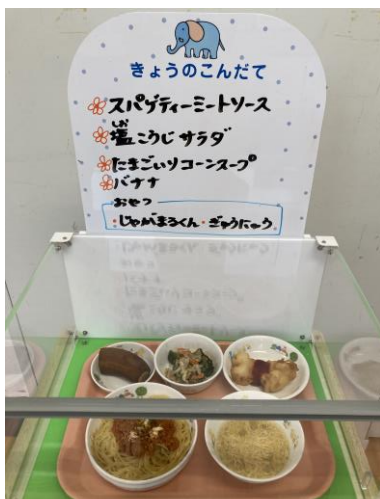 きょうのこんだて
スパゲティーミートソース
しお
塩こうじサラダ
たまごいりコーンスープ
バナナ
おやつ
・じゃがまるくん・ぎゅうにゅう